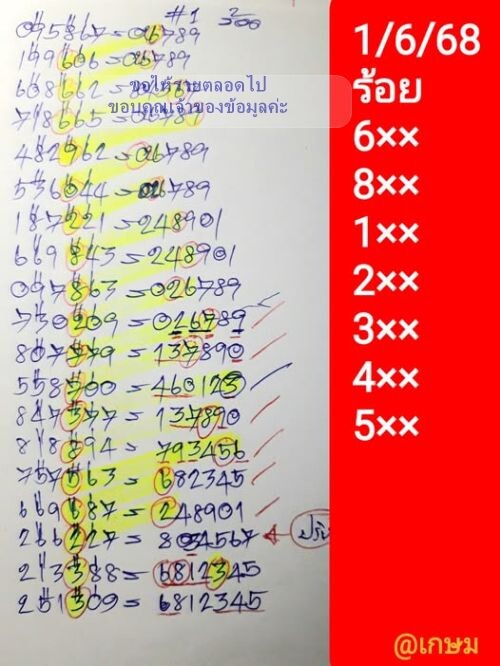 #1 2/300
095867=026789
199606=026789
608662
ขอให้รวยตลอดไป
ขอบคุณเจ้าของข้อมูลค่ะ
718665
482962=026789
536044=026789
187221=248901
669843=248901
097863=026789
730209=026789
807779=137890
558700=460123
847377=137890
818894=793456
757563=682345
669687=248901
266227=8034567
ปรับ
213388=6812345
251309=6812345
1/6/68
ร้อย
6××
8××
1××
2××
3××
4××
5××
@เกษม